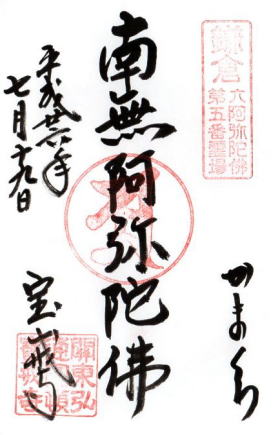 鎌倉
六阿弥陀佛
第五番霊場
かまくら
南無阿弥陀佛
平成廿六年
七月十九日
宝戒寺